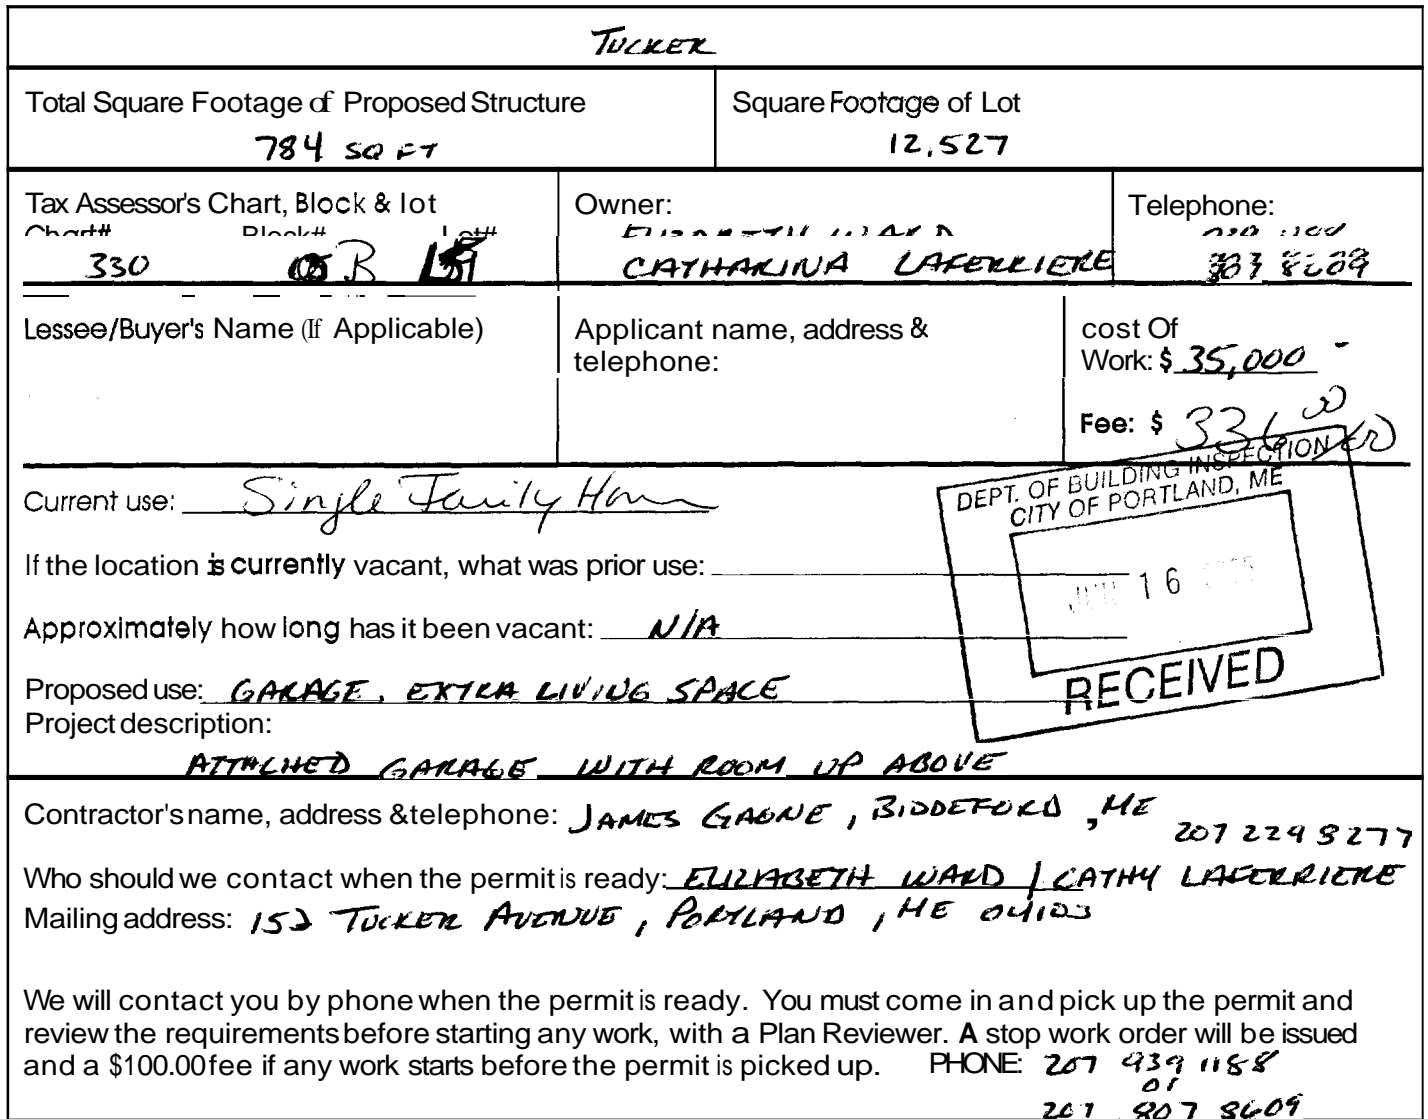 TUCKER
Total Square Footage of Proposed Structure
784 SQ FT
Square Footage of Lot
12,527
Tax Assessor's Chart, Block & lot
Chart# Block# Lot#
330 B
Owner:
ELIZABETH WARD
CATHARINA LAFERRIERE
Telephone:
807 8609
Lessee/Buyer's Name (If Applicable)
Applicant name, address &
telephone:
cost Of
Work: $ 35,000
Fee: $ 336.00
Current use: Single Family Home
If the location is currently vacant, what was prior use:
Approximately how long has it been vacant: N/A
Proposed use: GARAGE, EXTRA LIVING SPACE
Project description:
ATTACHED GARAGE WITH ROOM UP ABOVE
DEPT. OF BUILDING INSPECTION
CITY OF PORTLAND, ME
JUN 16
RECEIVED
Contractor's name, address & telephone: JAMES GAGNE, BIDDEFORD, ME
207 229 8277
Who should we contact when the permit is ready: ELIZABETH WARD / CATHY LAFERRIERE
Mailing address: 152 TUCKER AVENUE, PORTLAND, ME 04103
We will contact you by phone when the permit is ready. You must come in and pick up the permit and
review the requirements before starting any work, with a Plan Reviewer. A stop work order will be issued
and a $100.00 fee if any work starts before the permit is picked up. PHONE: 207 939 1188
or
207 807 8609